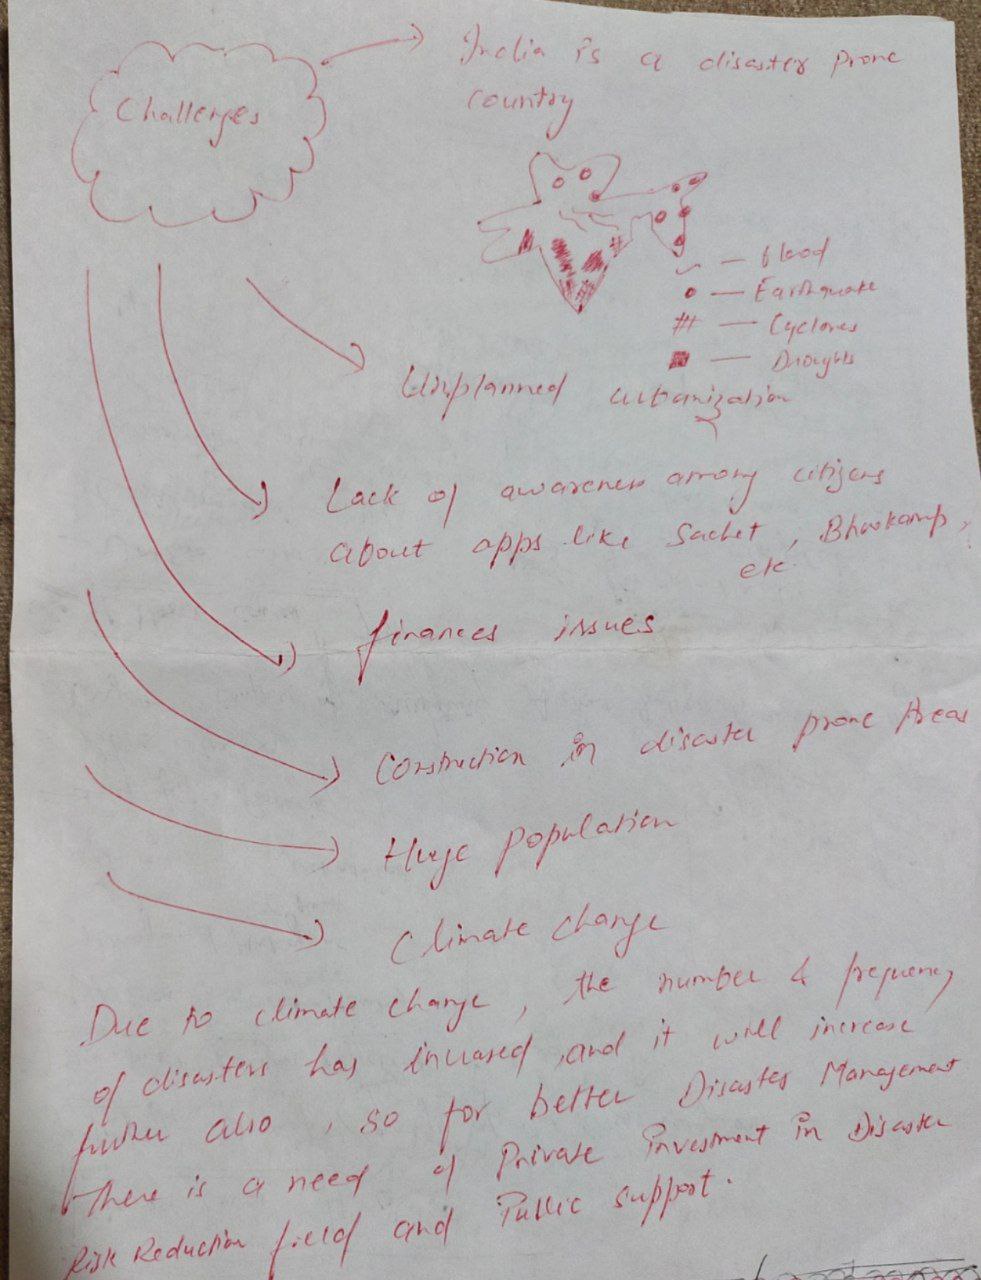 Challenges
India is a disaster prone
country
flood
Earthquake
Cyclones
Droughts
Unplanned urbanization
Lack of awareness among citizens
about apps like Sachet, Bhookamp,
etc
finances issues
Construction in disaster prone Areas
Huge population
Climate change
Due to climate change, the number & frequency
of disasters has incrased, and it will increase
further also, so for better Disaster Management
There is a need of Private investment in Disaster
Risk Reduction field and Public support.